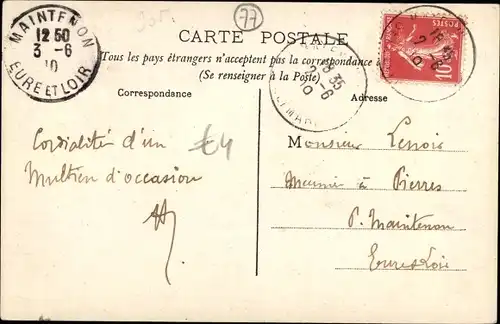 MAINTENON
12 50
3 -6
10
EURE ET LOIR
77
CARTE POSTALE
Tous les pays étrangers n'acceptent pas la correspondance à
(Se renseigner à la Poste)
Correspondance
Adresse
8 35
2 -6
10
POSTES
10
Cordialités d'un
Multien d'occasion
£4
Monsieur Lenoir
Meunier à Pierres
P. Maintenon
Eure & Loir